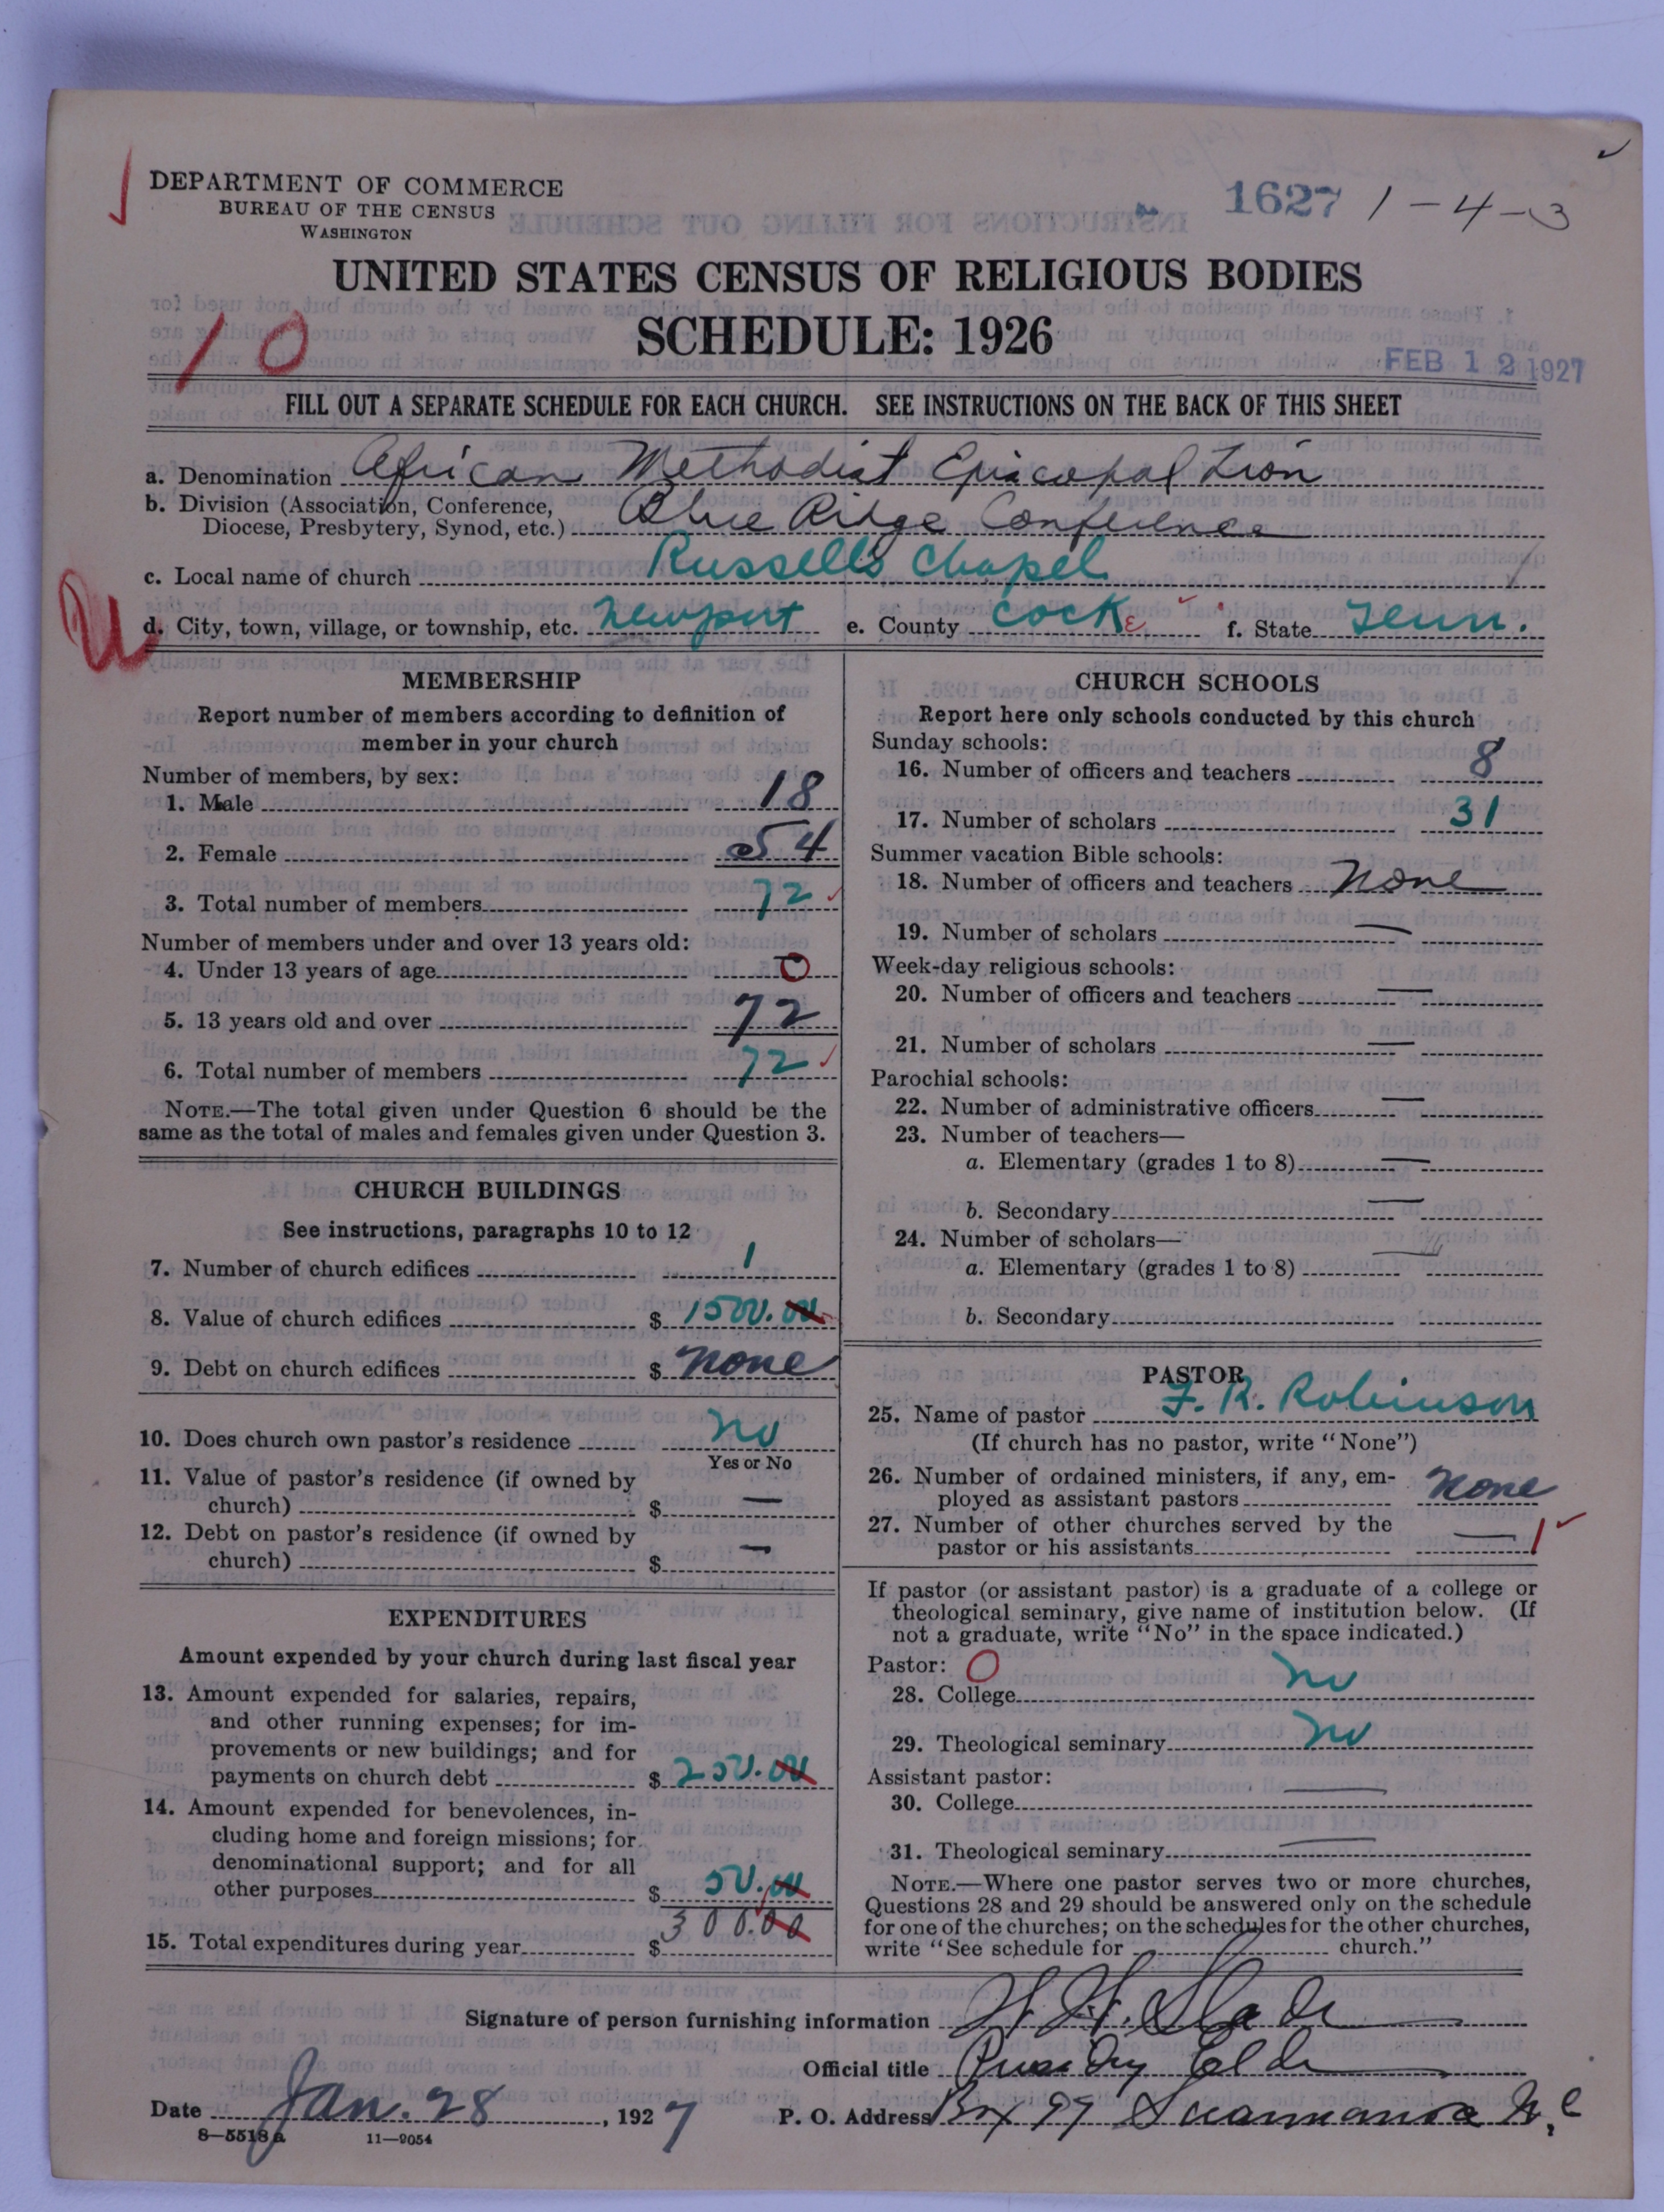 DEPARTMENT OF COMMERCE
BUREAU OF THE CENSUS
WASHINGTON
1627 1-4-3
UNITED STATES CENSUS OF RELIGIOUS BODIES
SCHEDULE: 1926
10
FEB 12 1927
FILL OUT A SEPARATE SCHEDULE FOR EACH CHURCH. SEE INSTRUCTIONS ON THE BACK OF THIS SHEET
a. Denomination African Methodist Episcopal Zion
b. Division (Association, Conference,
Diocese, Presbytery, Synod, etc.) Blue Ridge Conference
c. Local name of church Russells Chapel
d. City, town, village, or township, etc. Newport e. County Cocke f. State Tenn.
MEMBERSHIP
Report number of members according to definition of
member in your church
Number of members, by sex:
1. Male 18
2. Female 54
3. Total number of members 72
Number of members under and over 13 years old:
4. Under 13 years of age 0
5. 13 years old and over 72
6. Total number of members 72
NOTE.—The total given under Question 6 should be the
same as the total of males and females given under Question 3.
CHURCH BUILDINGS
See instructions, paragraphs 10 to 12
7. Number of church edifices 1
8. Value of church edifices $ 1500.00
9. Debt on church edifices $ none
10. Does church own pastor's residence no
Yes or No
11. Value of pastor's residence (if owned by
church) $ —
12. Debt on pastor's residence (if owned by
church) $ —
EXPENDITURES
Amount expended by your church during last fiscal year
13. Amount expended for salaries, repairs,
and other running expenses; for im-
provements or new buildings; and for
payments on church debt $ 250.00
14. Amount expended for benevolences, in-
cluding home and foreign missions; for
denominational support; and for all
other purposes $ 50.00
15. Total expenditures during year $ 300.00
CHURCH SCHOOLS
Report here only schools conducted by this church
Sunday schools:
16. Number of officers and teachers 8
17. Number of scholars 31
Summer vacation Bible schools:
18. Number of officers and teachers none
19. Number of scholars —
Week-day religious schools:
20. Number of officers and teachers —
21. Number of scholars —
Parochial schools:
22. Number of administrative officers —
23. Number of teachers—
a. Elementary (grades 1 to 8) —
b. Secondary —
24. Number of scholars—
a. Elementary (grades 1 to 8) —
b. Secondary
PASTOR
25. Name of pastor F. R. Robinson
(If church has no pastor, write "None")
26. Number of ordained ministers, if any, em-
ployed as assistant pastors none
27. Number of other churches served by the
pastor or his assistants — 1
If pastor (or assistant pastor) is a graduate of a college or
theological seminary, give name of institution below. (If
not a graduate, write "No" in the space indicated.)
Pastor: 0
28. College no
29. Theological seminary no
Assistant pastor:
30. College —
31. Theological seminary —
NOTE.—Where one pastor serves two or more churches,
Questions 28 and 29 should be answered only on the schedule
for one of the churches; on the schedules for the other churches,
write "See schedule for church."
Signature of person furnishing information H. H. Slade
Official title Elder
Date Jan. 28, 1927 P. O. Address Box 97 Swannanoa N.C
8—5518a 11—9054